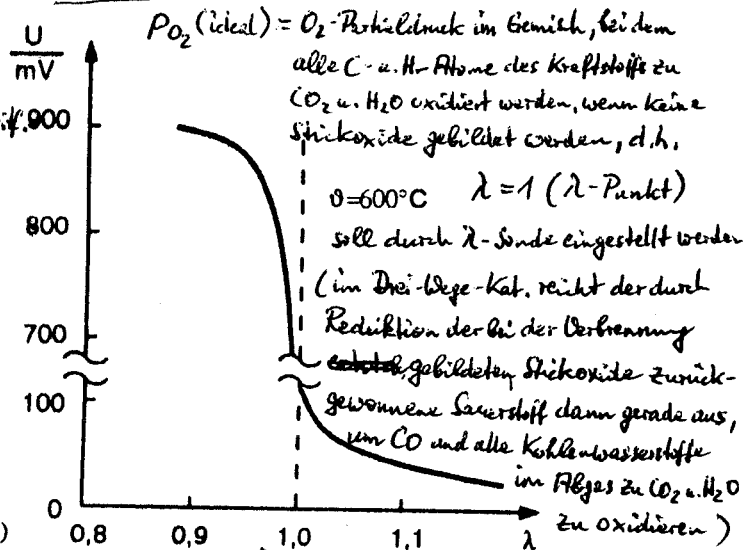 U
mV
P_O2 (ideal) = O2-Partialdruck im Gemisch, bei dem
alle C- u. H-Atome des Kraftstoffs zu
900
CO2 u. H2O oxidiert werden, wenn keine
Stickoxide gebildet werden, d.h.
ϑ=600°C λ=1 (λ-Punkt)
800
soll durch λ-Sonde eingestellt werden
(im Drei-Wege-Kat. reicht der durch
700
Reduktion der bei der Verbrennung
gebildeten Stickoxide zurück-
100
gewonnene Sauerstoff dann gerade aus,
um CO und alle Kohlenwasserstoffe
im Abgas zu CO2 u. H2O
0
zu oxidieren)
)
0,8 0,9 1,0 1,1 λ